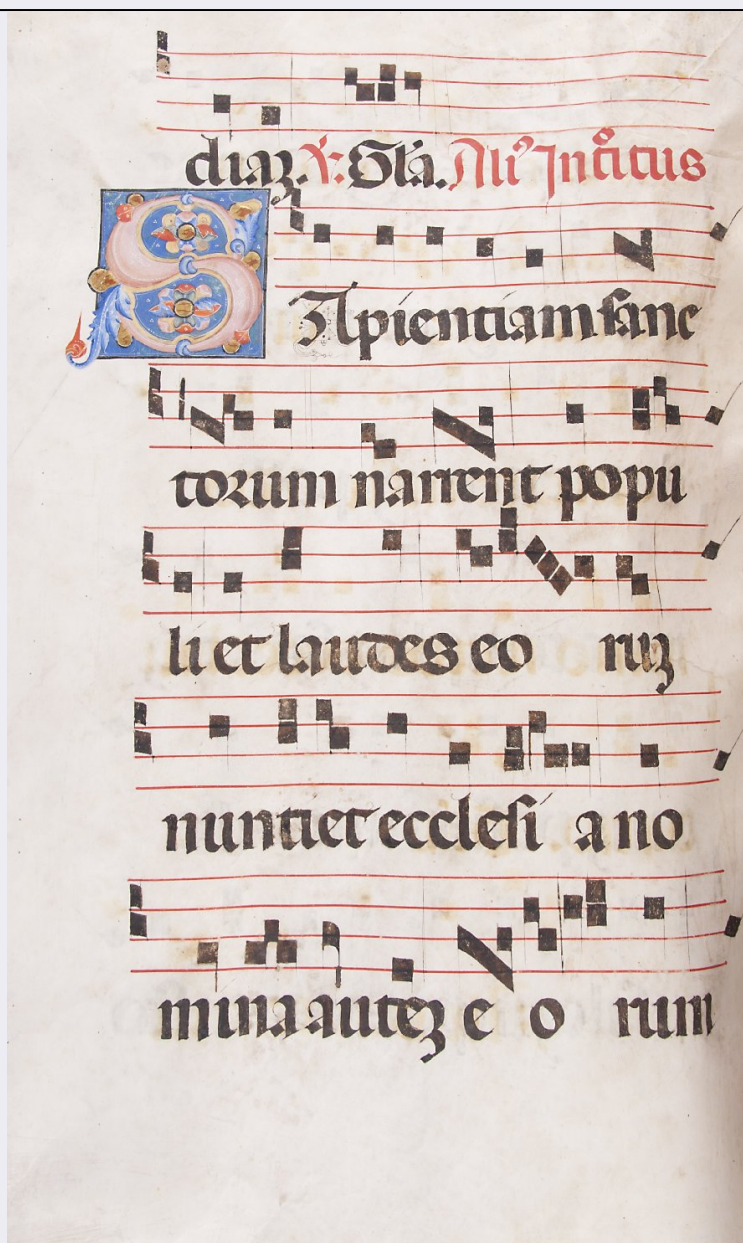 diaz. ℣: Gl'a. Ali' Introitus
SApientiam sanc
torum narrent popu
li et laudes eo ruz
nuntiet ecclesi a no
mina autez e o rum